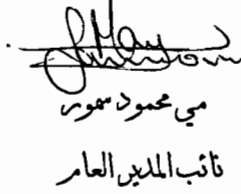 مي محمود سمور
نائب المدير العام